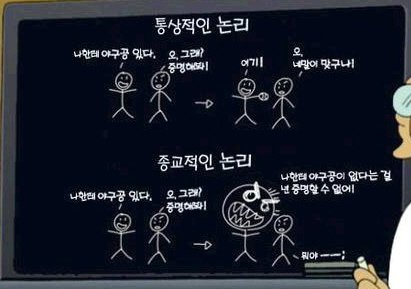 통상적인 논리
나한테 야구공 있다.
오, 그래?
증명해봐!
여기!
오,
네말이 맞구나!
종교적인 논리
나한테 야구공 있다.
오, 그래?
증명해봐!
나한테 야구공이 없다는 걸
넌 증명할 수 없어!
뭐야 ㅡㅡ;